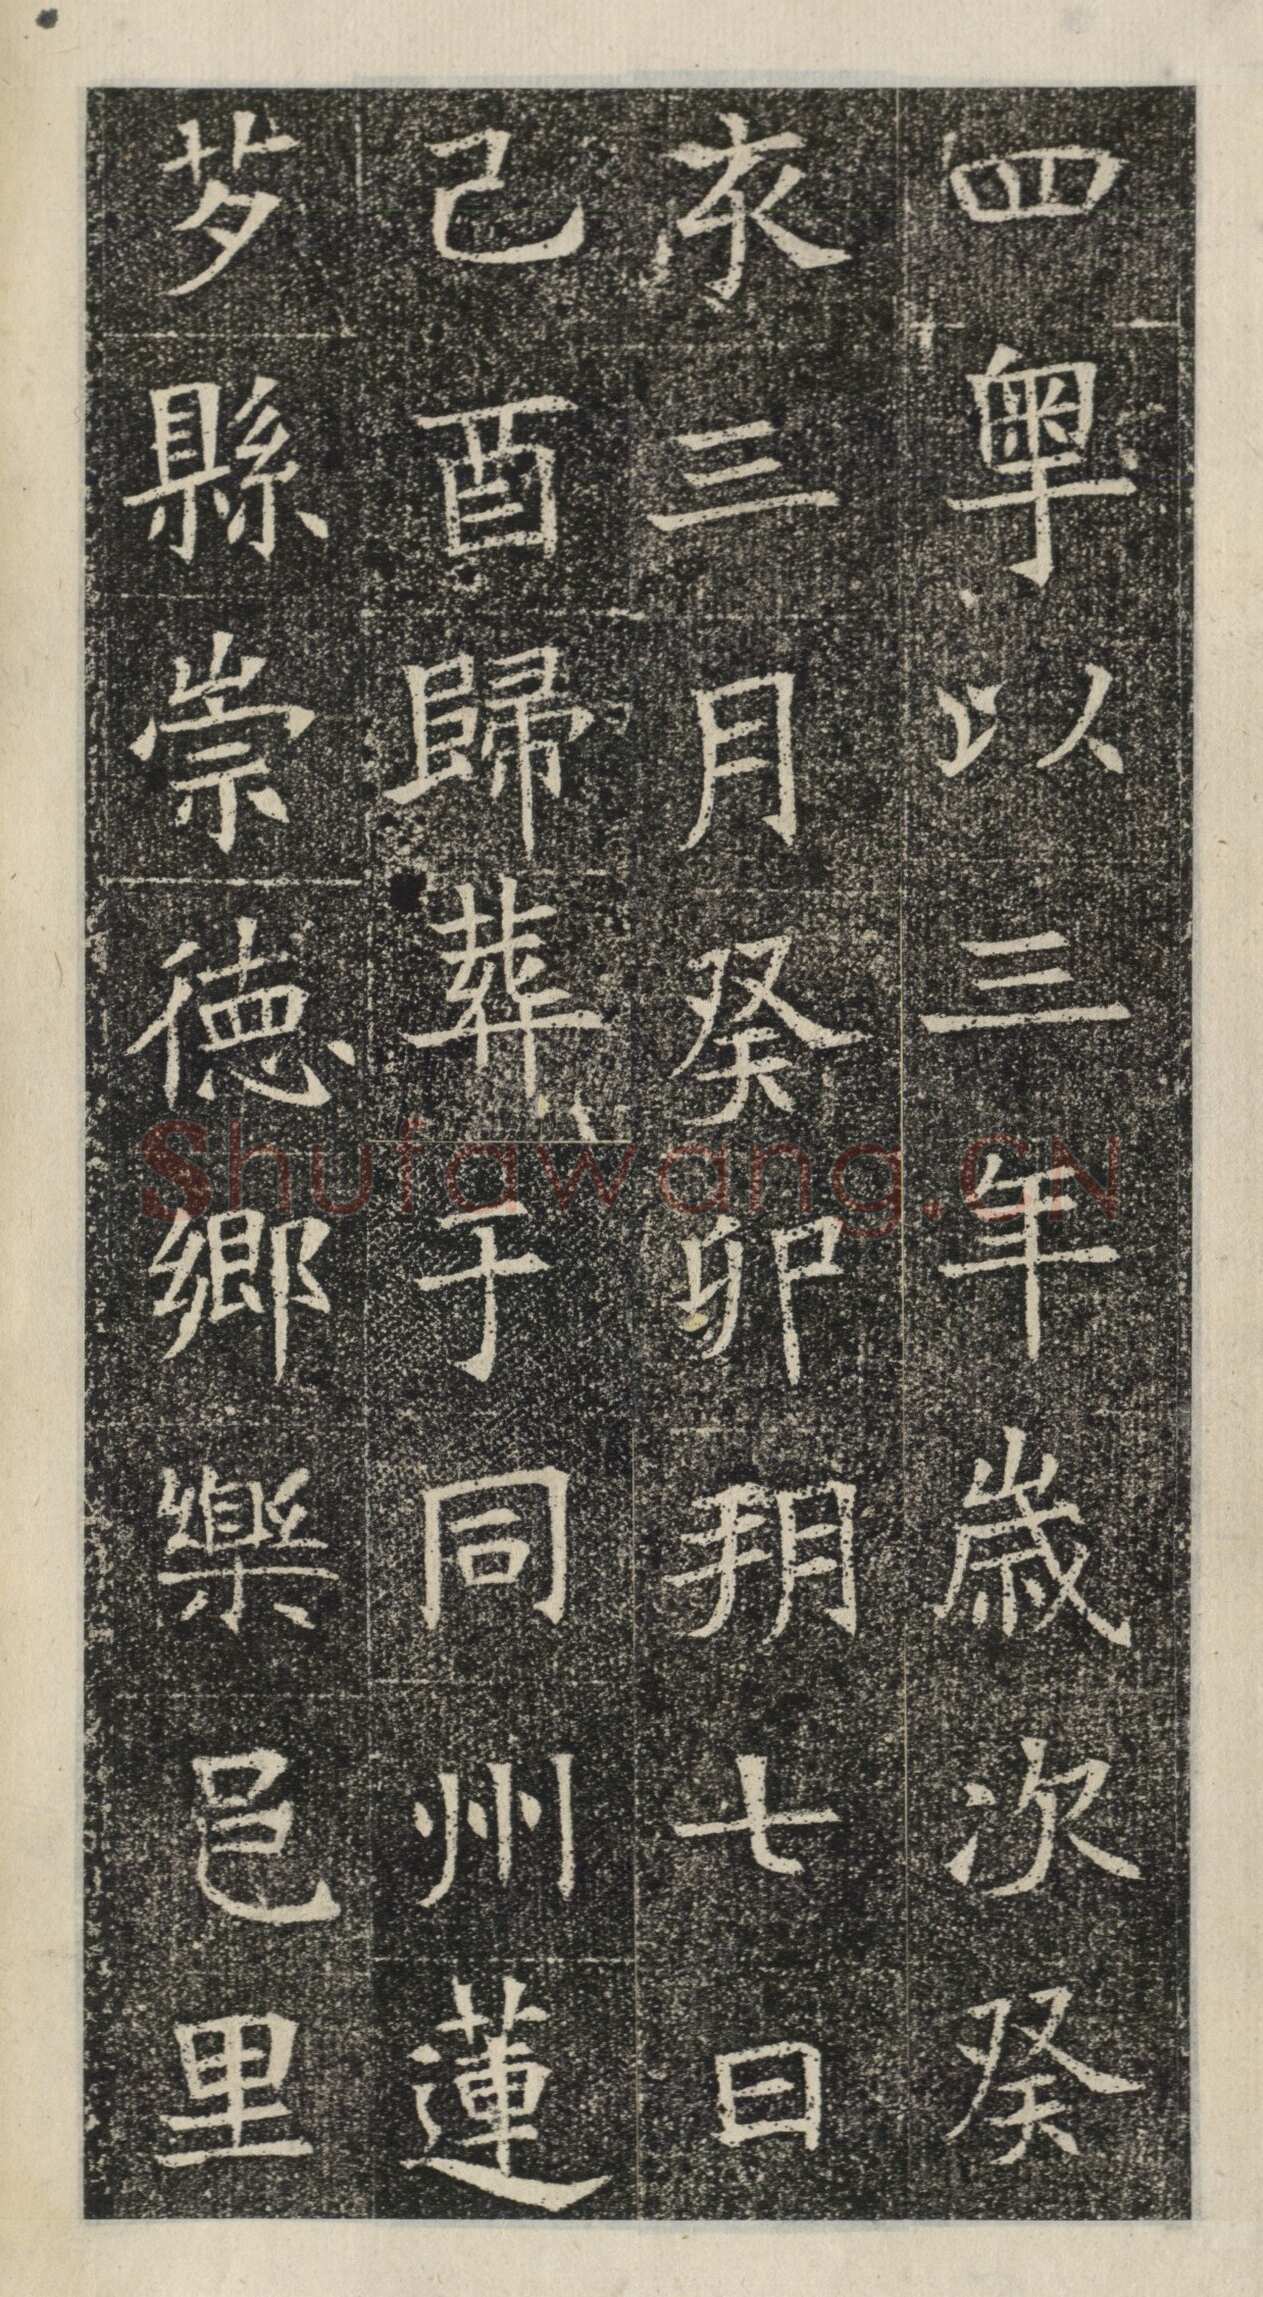 四粤以三年歲次癸
亥三月癸卯朔七日
己酉歸葬于同州蓮
芍縣崇德鄉樂邑里
Shufawang.CN